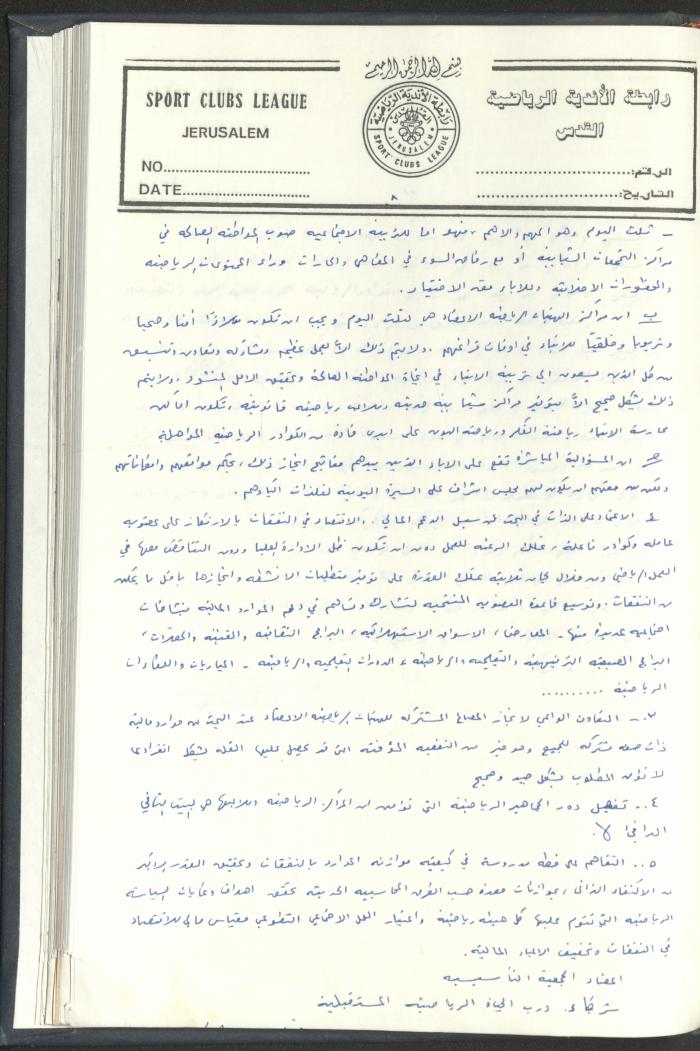 بسم الله الرحمن الرحيم
SPORT CLUBS LEAGUE
JERUSALEM
NO
DATE
رابطة الأندية الرياضية
القدس
SPORT CLUBS LEAGUE
JERUSALEM
رابطة الأندية الرياضية
القدس
الرقم:
التاريخ:
٨
ـ ثلث اليوم وهو المهم والاهم، فهو اما للتربية الاجتماعيه صوب المواطنه الصالحه في
مراكز التجمعات الشبابية أو مع رفاق السوء في المقاهي والحارات وراء الممنوعات الرياضيه
والمحظورات الاخلاقيه وللاباء حق الاختيار.
ب ان مراكز الهيئات الرياضيه الاعضاء هي لثلث اليوم ويجب ان تكون ملاذا أمنا وصحيا
وتربويا وخلقيا للابناء في اوقات فراغهم. ولايتم ذلك الا بعمل عظيم ومشاركه وتعاون وتنسيق
من كل الذين يسعون الى تربية الابناء في الحياة المواطنه الصالحة وتحقيق الامل المنشود، ولايتم
ذلك بشكل صحيح الا بتوفير مراكز شبابية حديثه وملاعب رياضيه قانونيه، تكون اماكن
ممارسة الابناء رياضة الفكر ورياضة البدن على ايدي قادة من الكوادر الرياضيه المؤهله
جـ ان المسؤولية المباشرة تقع على الاباء الذين بيدهم مفاتيح انجاز ذلك، بحكم مواقعهم وامكاناتهم
ولكن من حقهم ان يكون لهم مجلس اشراف على السيرة اليومية لفلذات اكبادهم.
٢ـ الاعتماد على الذات في البحث عن سبل الدعم المالي.. الاقتصاد في النفقات بالارتكاز على عضويه
عامله وكوادر فاعله، تملك الرغبه للعمل دون ان تكون ظل الادارة العليا ودون التناقض معها في
العمل الرياضي ومن خلال لجان ثلاثيه تملك القدرة على توفير متطلبات الانشطه وانجازها باقل ما يمكن
من النفقات. وتوسيع قاعدة العضويه المنتميه لتشارك وتساهم في دعم الموارد الماليه بنشاطات
اجتماعيه عديدة منها ـ المعارض، الاسواق الاستهلاكيه، البرامج الثقافيه والفنيه والحفلات،
البرامج الصيفيه الترفيهيه والتعليميه والرياضيه، الدورات التعليميه والرياضيه ـ المباريات واللقاءات
الرياضيه ..........
٣ـ ـ التعاون الواعي لانجاز المصالح المشتركه للهيئات الرياضيه الاعضاء عند البحث عن موارد ماليه
ذات صفه مشتركه للجميع وهو خير من النفعيه المؤقته التي قد يحصل عليها القله بشكل انفرادي
لا تؤمن المطلوب بشكل جيد وصحيح
٤ـ ـ تفعيل دور الجماهير الرياضيه التي تؤمن ان المراكز الرياضيه وملاعبها هي البيت الثاني
الدافئ لا.
٥ـ ـ التفاهم على خطه مدروسة في كيفيه موازنة الموارد بالنفقات وتحقيق القدر الاكبر
من الاكتفاء الذاتي، بموازنات معدة حسب الطرق المحاسبيه الحديثه تحقق اهداف وغايات السياسه
الرياضيه التي تقوم عليها كل هيئه رياضيه واعتبار العمل الاجتماعي التطوعي مقياس مالي للاقتصاد
في النفقات وتخفيف الاعباء الماليه.
اعضاء الجمعية التأسيسيه
شركاء درب الحياة الرياضيه المستقبلية